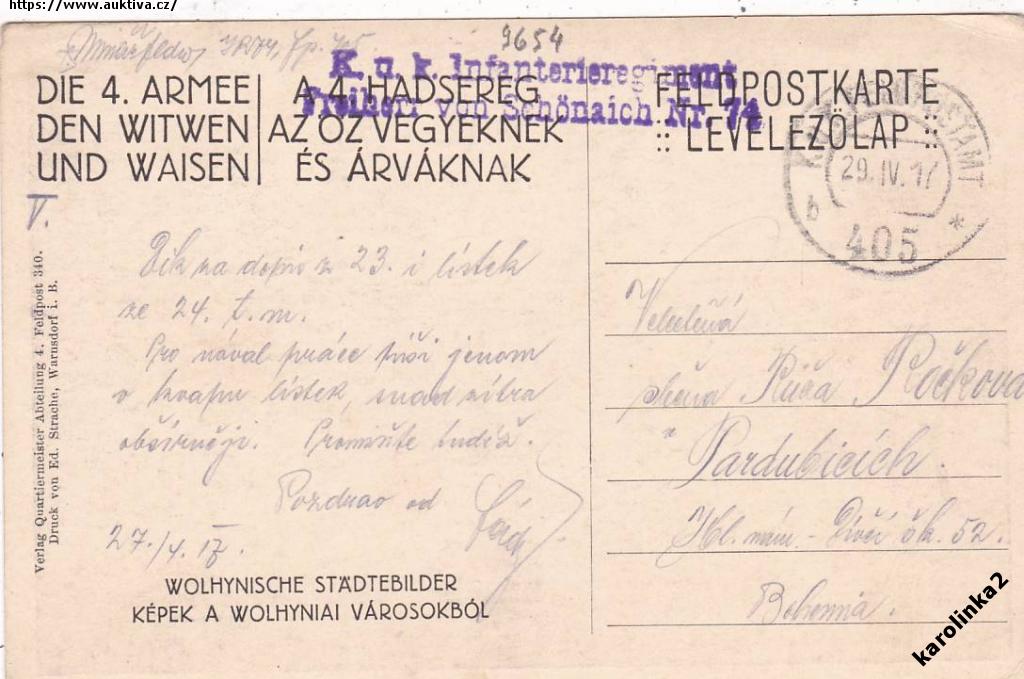 https://www.auktiva.cz/
9654
K. u. k. Infanterieregiment
Freiherr von Schönaich Nr. 74
DIE 4. ARMEE
DEN WITWEN
UND WAISEN
A 4. HADSEREG
AZ ÖZVEGYEKNEK
ÉS ÁRVÁKNAK
FELDPOSTKARTE
:: LEVELEZŐLAP ::
29. IV. 17
b
405 *
V.
Dík za dopis z 23. i lístek
ze 24. t. m.
Pro nával práce píši jenom
v kvapu lístek, snad zítra
obšírněji. Promiňte tudíž.
Pozdrav od
27./4. 17.
WOLHYNISCHE STÄDTEBILDER
KÉPEK A WOLHYNIAI VÁROSOKBÓL
Verlag Quartiermeister Abteilung 4. Feldpost 340.
Druck von Ed. Strache, Warnsdorf i. B.
Velectěná
slečna Růža Ročkova
v
Pardubicích.
Hl. nám. - Dívčí šk. 52.
Bohemia.
karolinka2